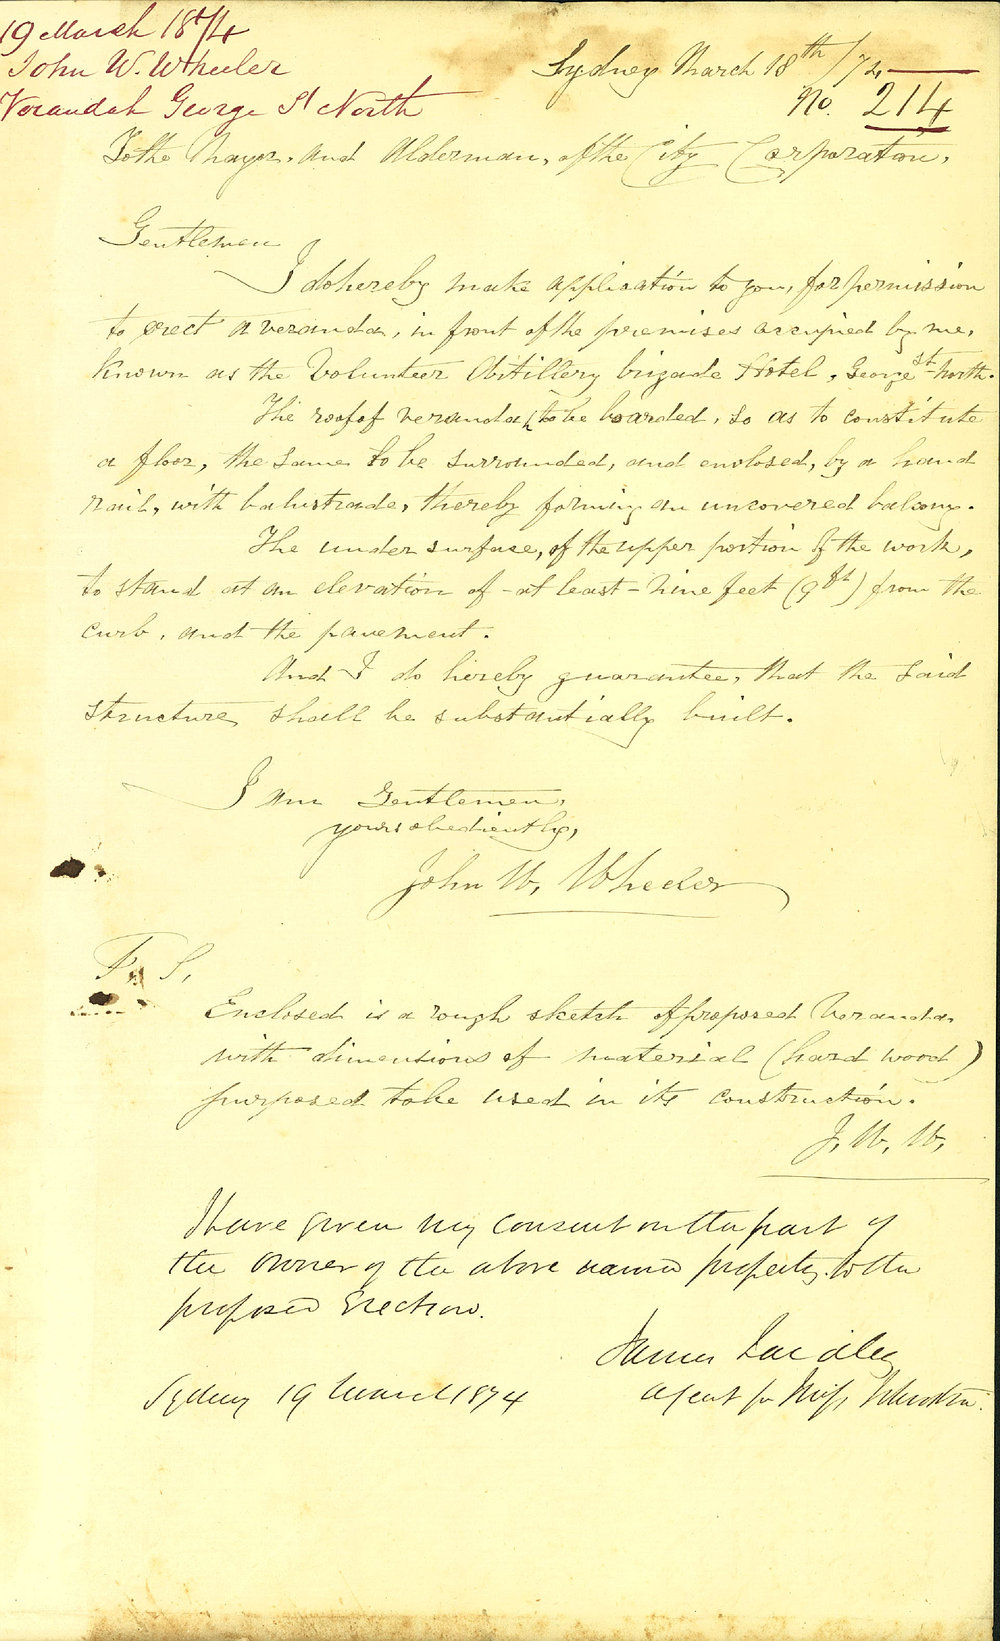 19 March 1874
John W. Wheeler
Verandah George St North
Sydney March 18th /74
No. 214
To the Mayor, and Alderman, of the City Corporation,
Gentlemen
I do hereby make application to you, for permission
to erect a veranda, in front of the premises occupied by me,
known as the Volunteer Artillery brigade Hotel, George St North.
The roof of veranda to be boarded, so as to constitute
a floor, the same to be surrounded, and enclosed, by a hand
rail, with balustrade, thereby forming an uncovered balcony.
The under surface, of the upper portion of the work,
to stand at an elevation of - at least - nine feet (9ft) from the
curb, and the pavement.
And I do hereby guarantee, that the said
structure shall be substantially built.
I am Gentlemen,
yours obediently,
John W. Wheeler
P. S.
Enclosed is a rough sketch of proposed Veranda
with dimensions of material (hard wood)
purposed to be used in its construction.
J. W. W.
I have given my consent on the part of
the owner of the above named property to the
proposed Erection.
James Laidley
Agent for Miss
Sydney 19 March 1874